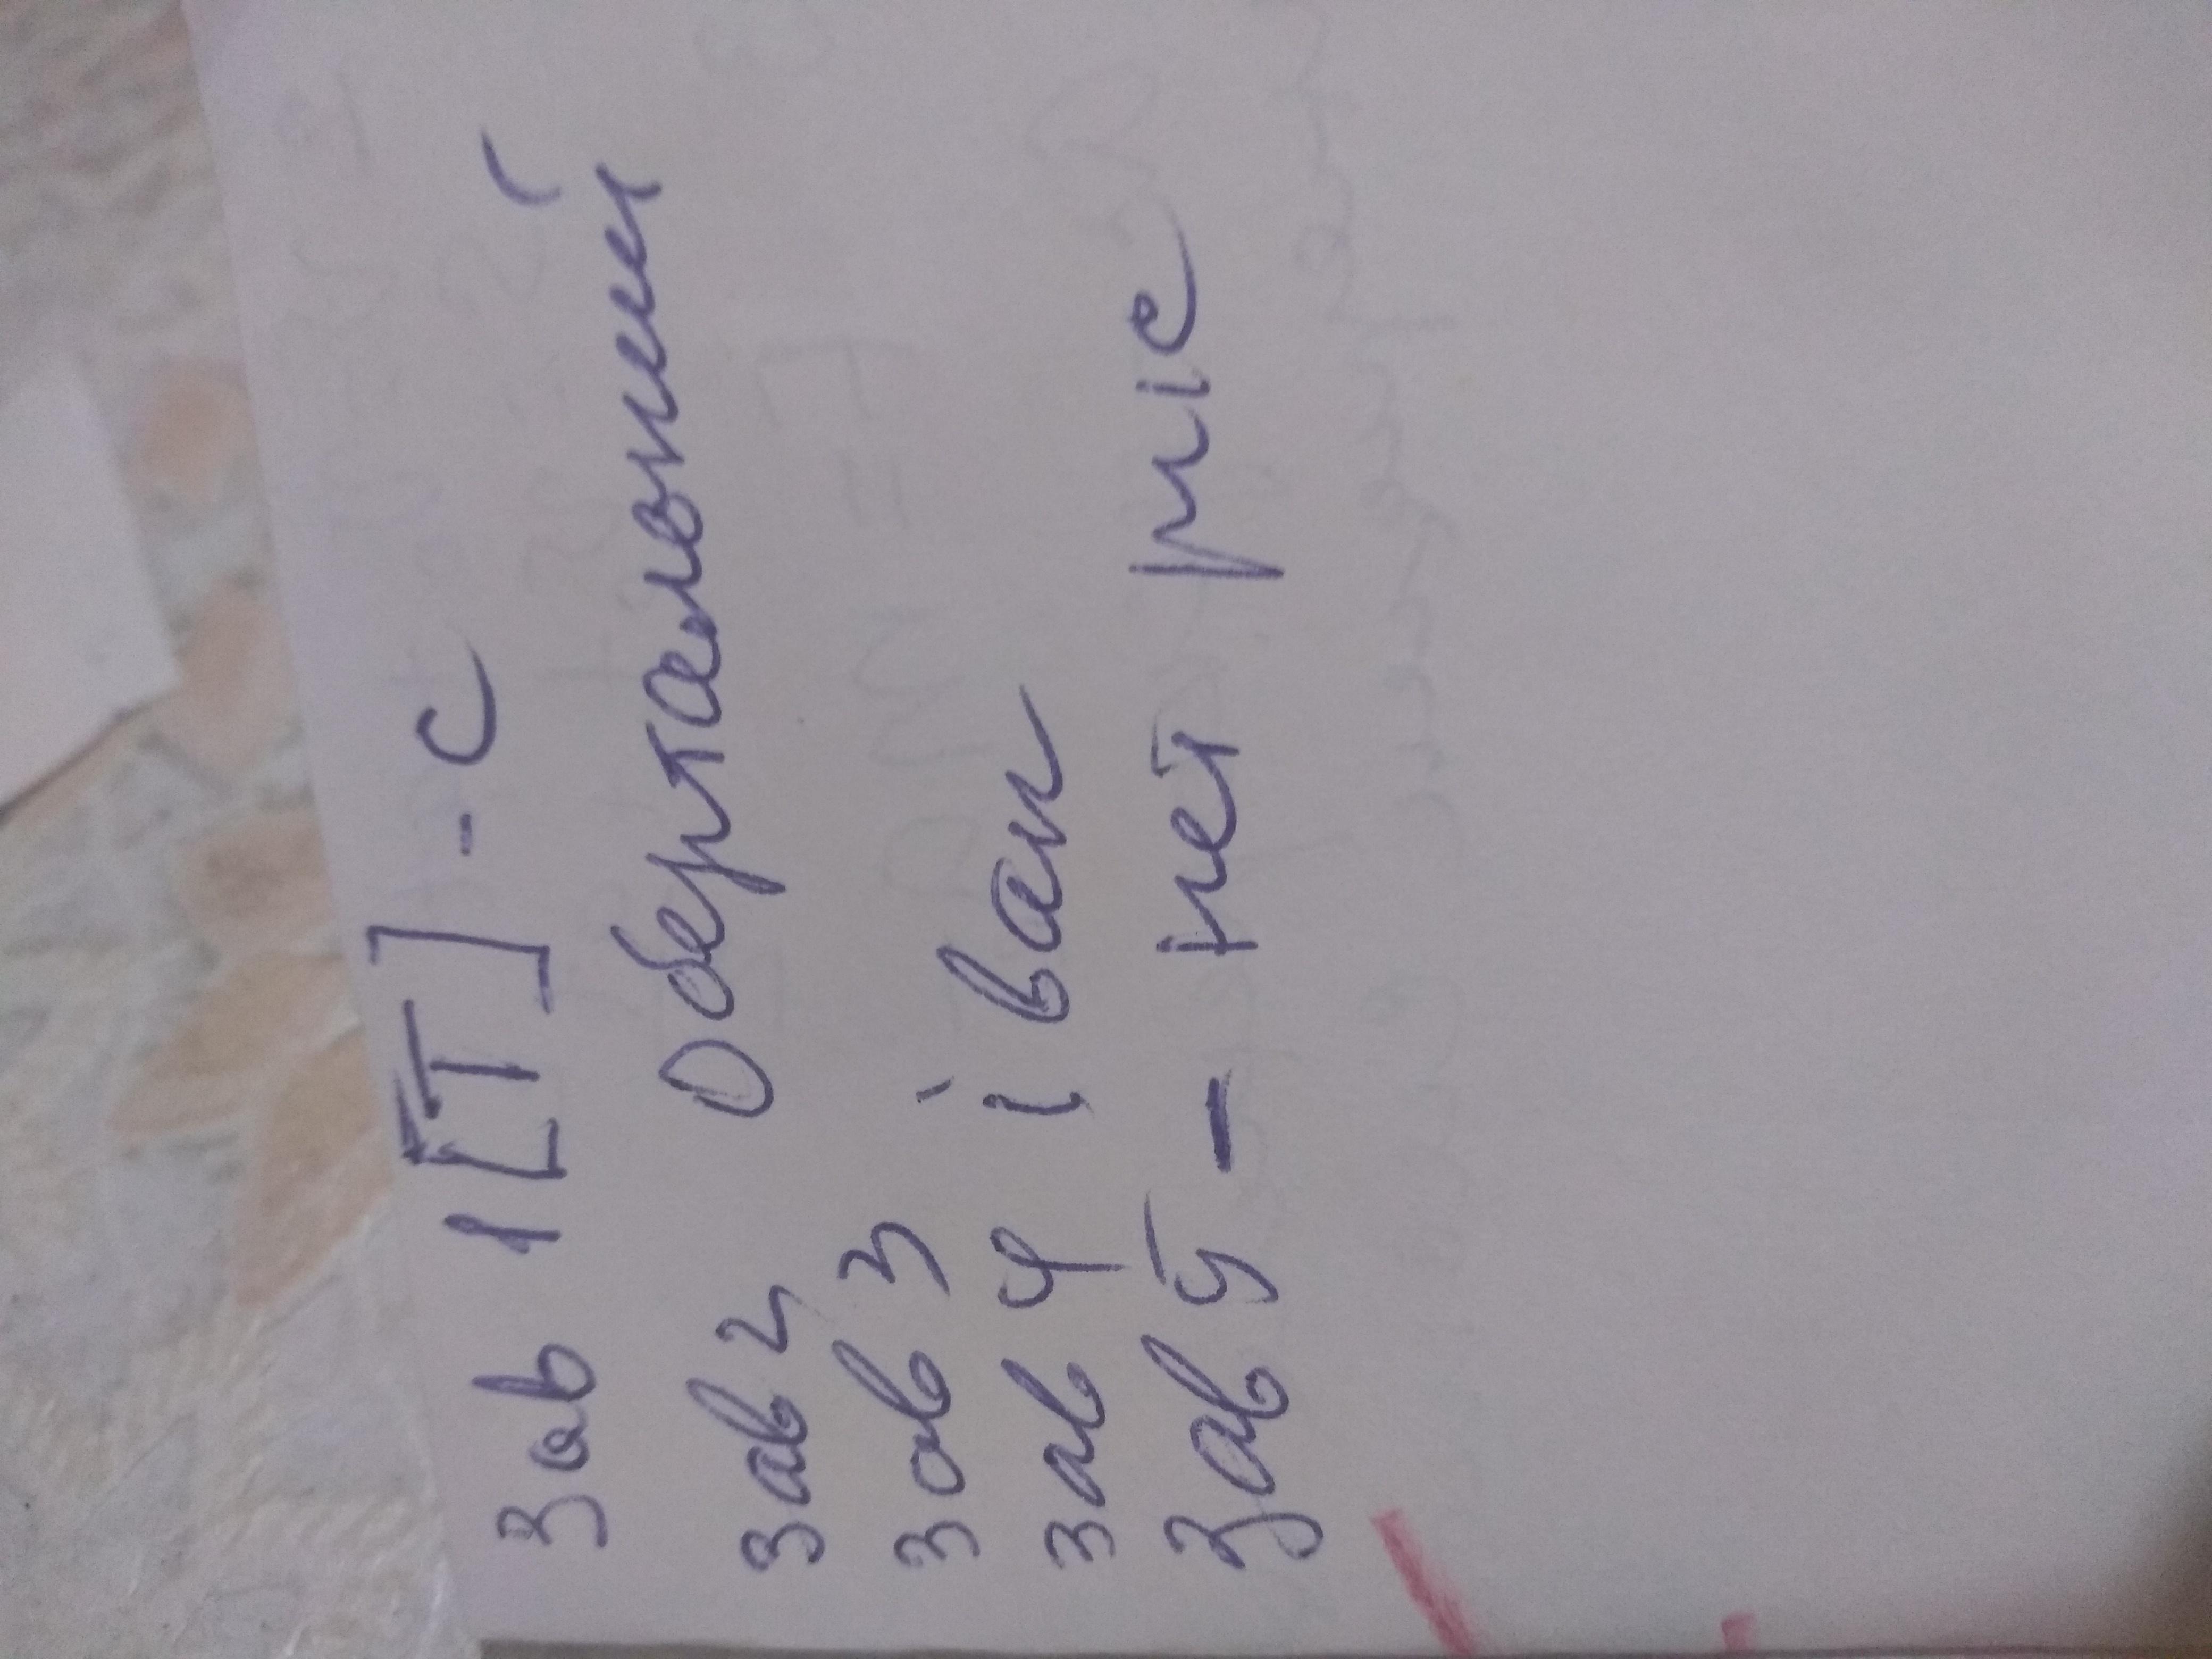 Зав 1 [Т] - С
Зав 2 Обертальний
Зав 3
Зав 4 і ван
Зав 5 - ней ріс